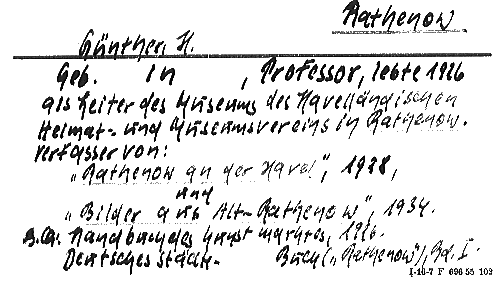 Rathenow.
Günther, H.
Geb. in , Professor, lebte 1926
als Leiter des Museums des Havelländischen
Heimat- und Museumsvereins in Rathenow.
Verfasser von:
„Rathenow an der Havel", 1928,
und
„Bilder aus Alt-Rathenow", 1934.
B.A. Handbuch des Kunstmarktes, 1926.
Deutsches Städte- Buch („Rathenow"), Bd. I.
I-10-7 F 696 55 102